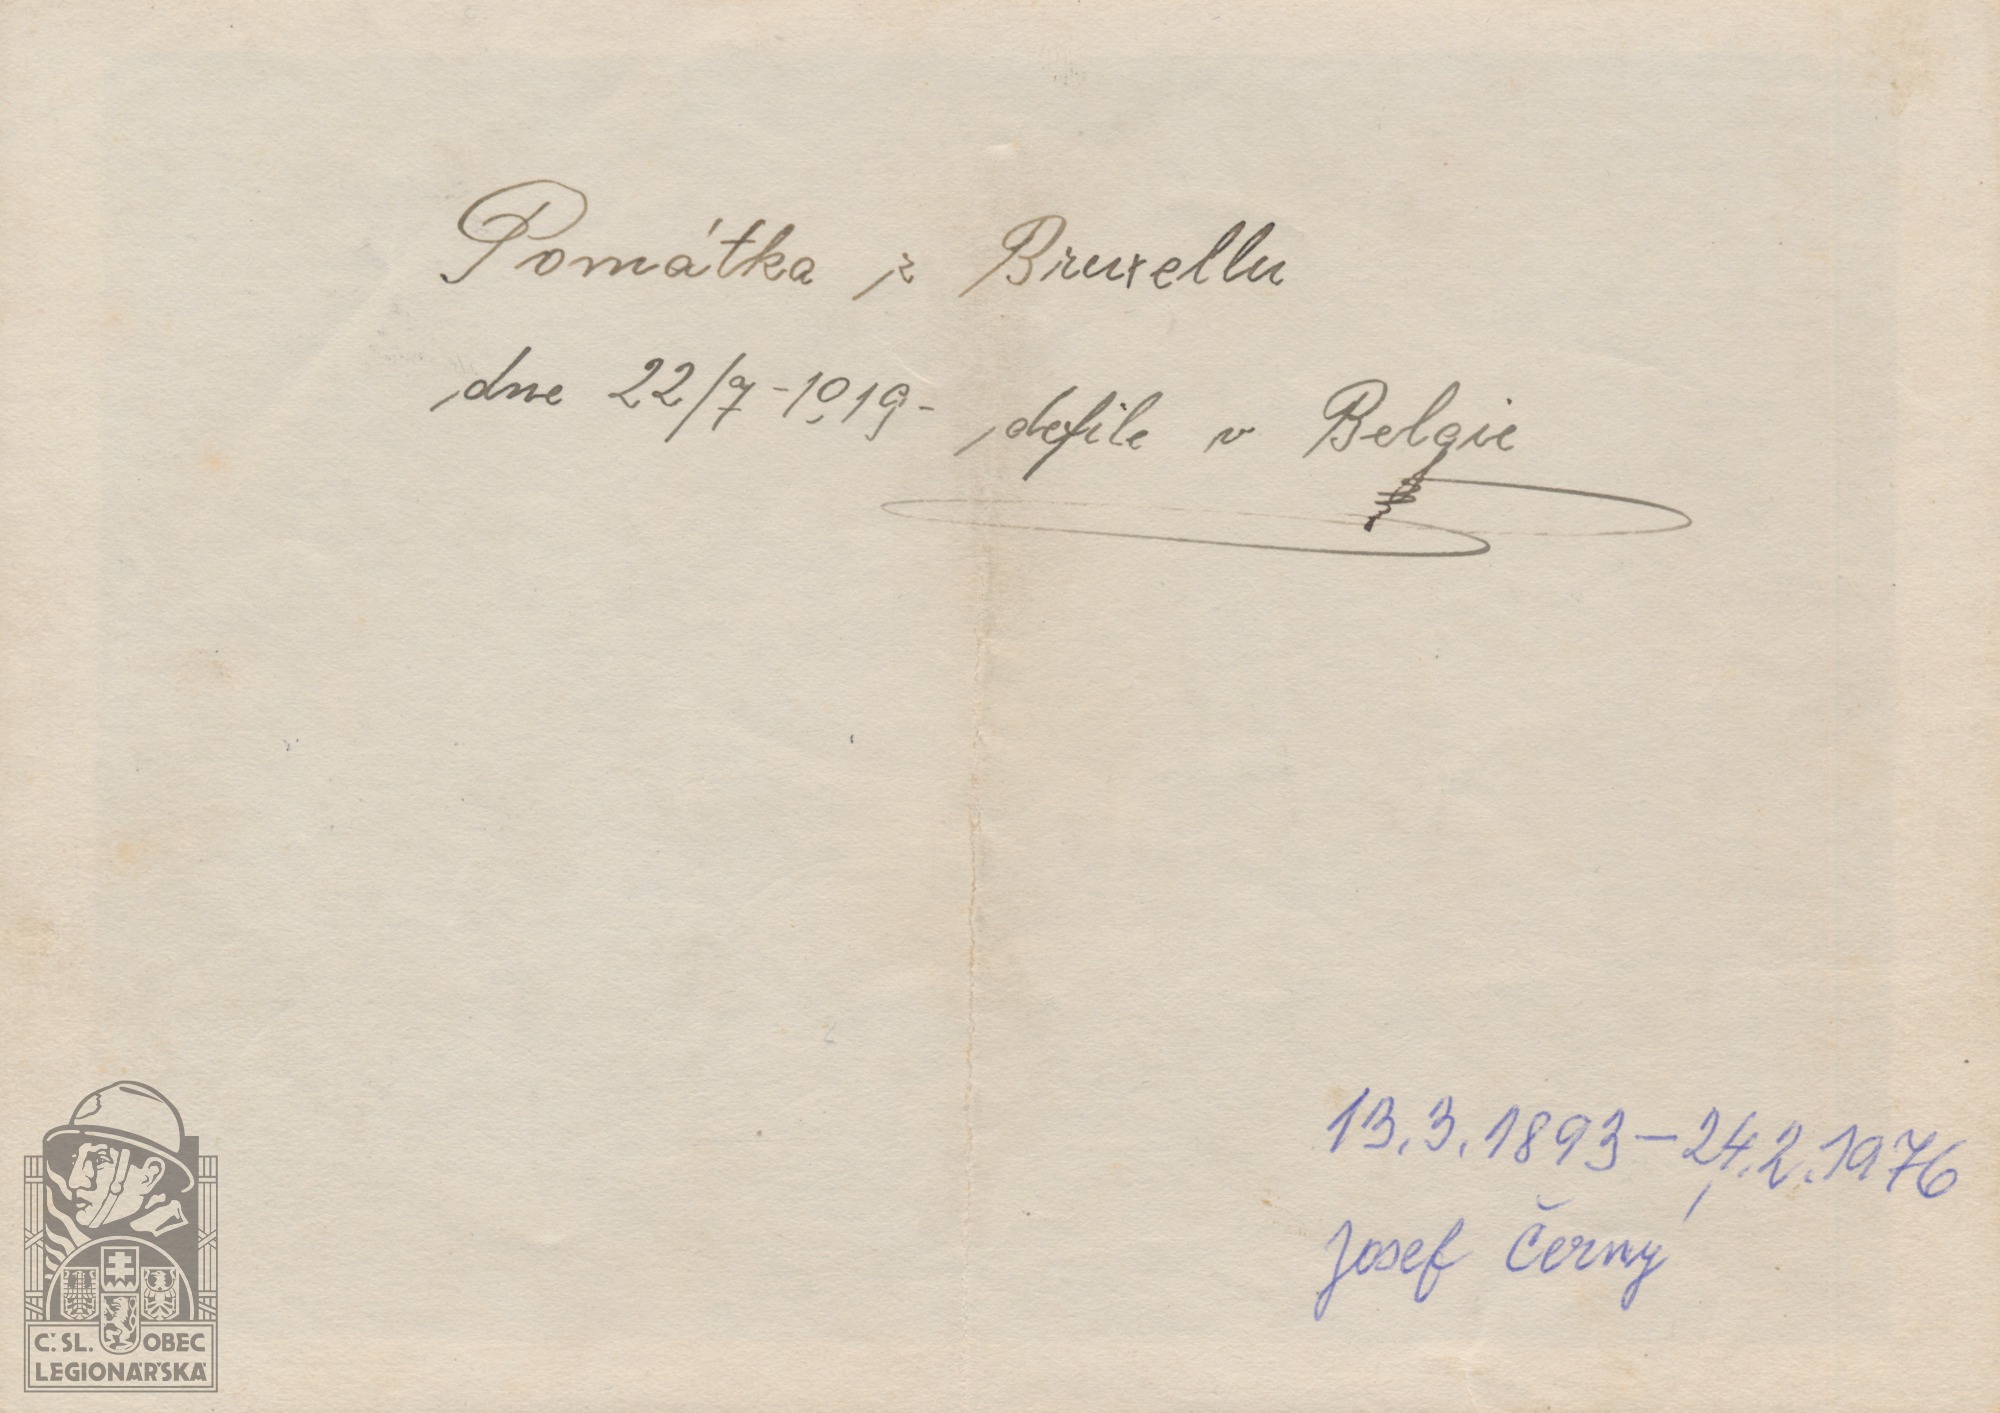 Pomátka z Bruxellu
dne 22/7 - 1919 - defile v Belgie
13.3.1893 – 24.2.1976
Josef Černý
Č.SL. OBEC
LEGIONÁŘSKÁ